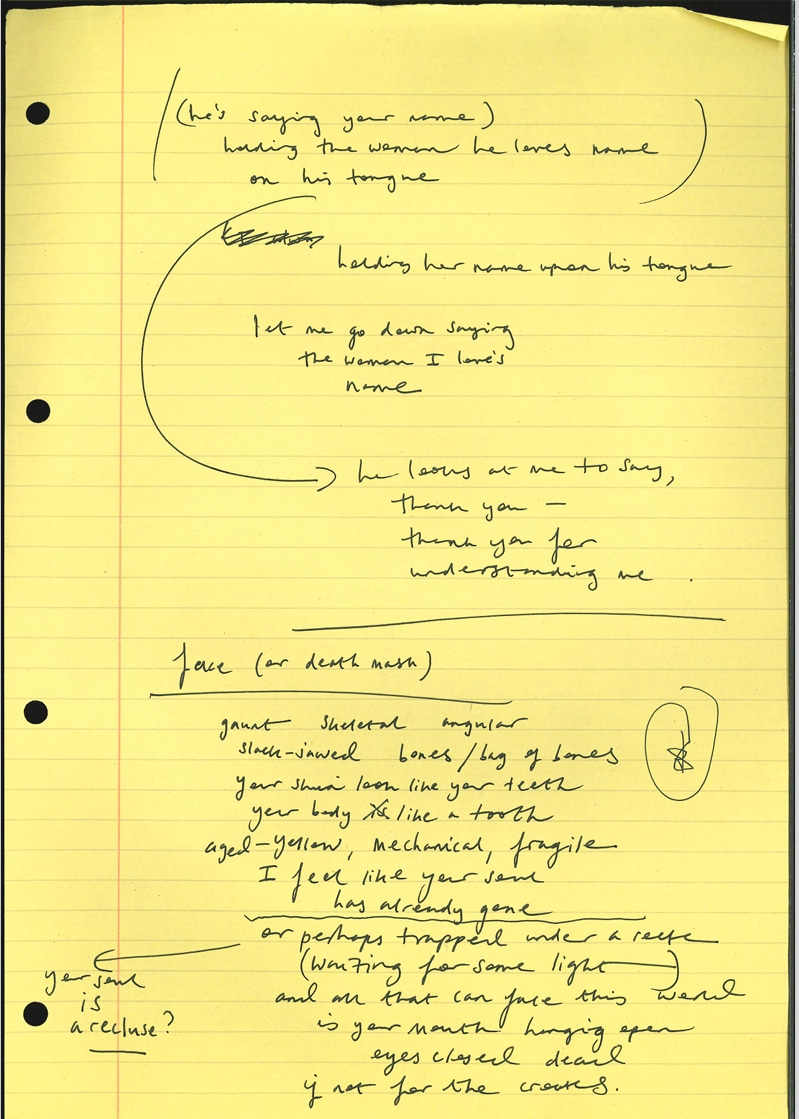 (he's saying your name)
holding the woman he loves name
on his tongue
holding her name upon his tongue
let me go down saying
the woman I love's
name
he looks at me to say,
thank you —
thank you for
understanding me .
face (or death mask)
gaunt skeletal angular
slack-jawed bones/bag of bones
your look like your teeth
your body is like a tooth
aged-yellow, mechanical, fragile
I feel like your soul
has already gone
or perhaps trapped under a
(waiting for some light)
your soul
is
a recluse?
and all that can face this world
is your mouth hanging open
eyes closed dead
if not for the